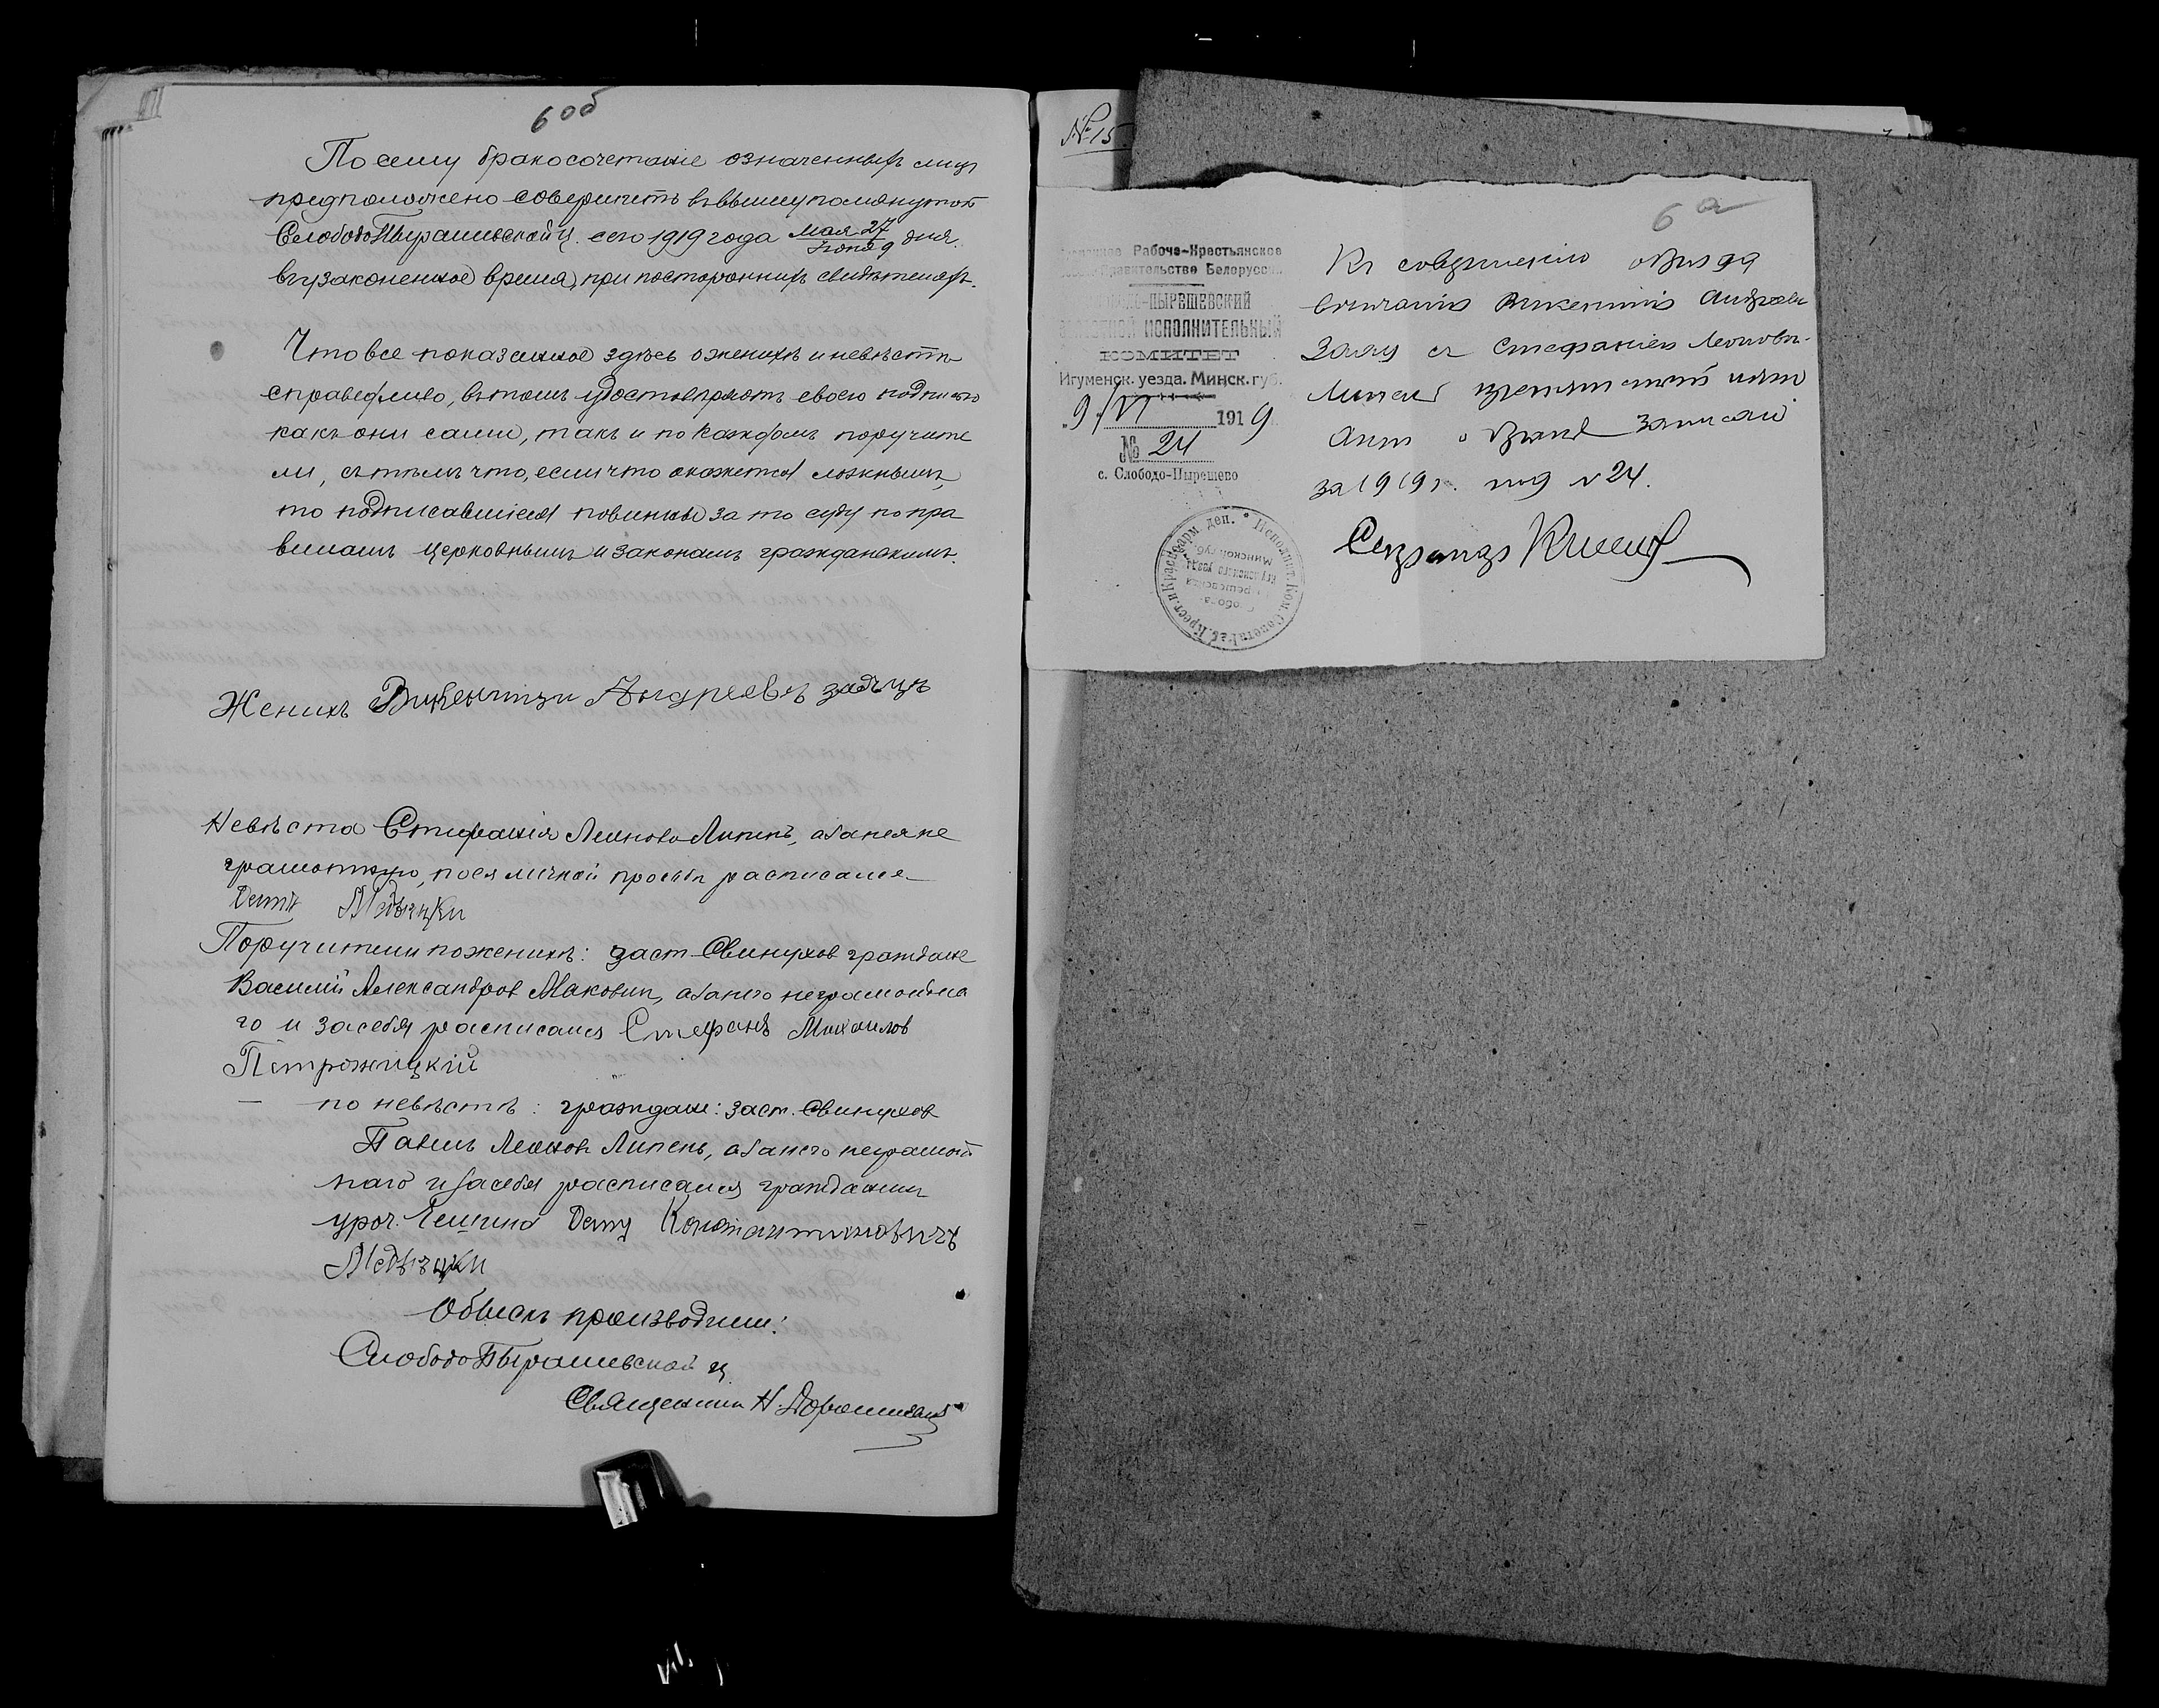 6 об
По сему бракосочетание означенныхъ лицъ
предположено совершить въ вышеупомянутой
Слободо Пырашевской ц. сего 1919 года мая 27 / Іюня 9 дня.
въ узаконенное время, при постороннихъ свидѣтеляхъ.
Что все показанное здѣсь о женихѣ и невѣстѣ
справедливо, въ томъ удостовѣряютъ своею подписью
какъ они сами, такъ и по каждомъ поручите
ли, съ тѣмъ что, если что окажется ложнымъ,
то подписавшіеся повинны за то суду по пра
виламъ церковнымъ и законамъ гражданскимъ.
Женихъ Викентий Андреевъ
Невѣста Стефанія Леонова Липень, а за нея не
грамотную, по ея личной просьбѣ расписался
Поручители по женихѣ: заст. Свинухов граждане
Василій Александров Макович, а за него неграмотна
го и за себя расписался Стефанъ Михаилов
Петрожицкій
— по невѣстѣ: граждан: заст. Свинухов
Павелъ Леонов Липень, а за него неграмот
наго и за себя расписался гражданин
уроч. Константиновичъ
Обыскъ производили:
Слободо Пырашевской ц.
Священник Н.
№ 15
6 а
Рабоче-Крестьянское
Правительство Белоруссии
-ПЫРЕШЕВСКИЙ
ИСПОЛНИТЕЛЬНЫЙ
КОМИТЕТ
Игуменск. уезда. Минск. губ.
„9/VI 1919
№ 24
с. Слободо-Пырешево
Къ совершенію обряда
вѣнчанія Викентія Андреева
Заяц съ Стефаніей Леоновой
Липень препятствий нет
Акт о браке записан
за 1919 г. под № 24.